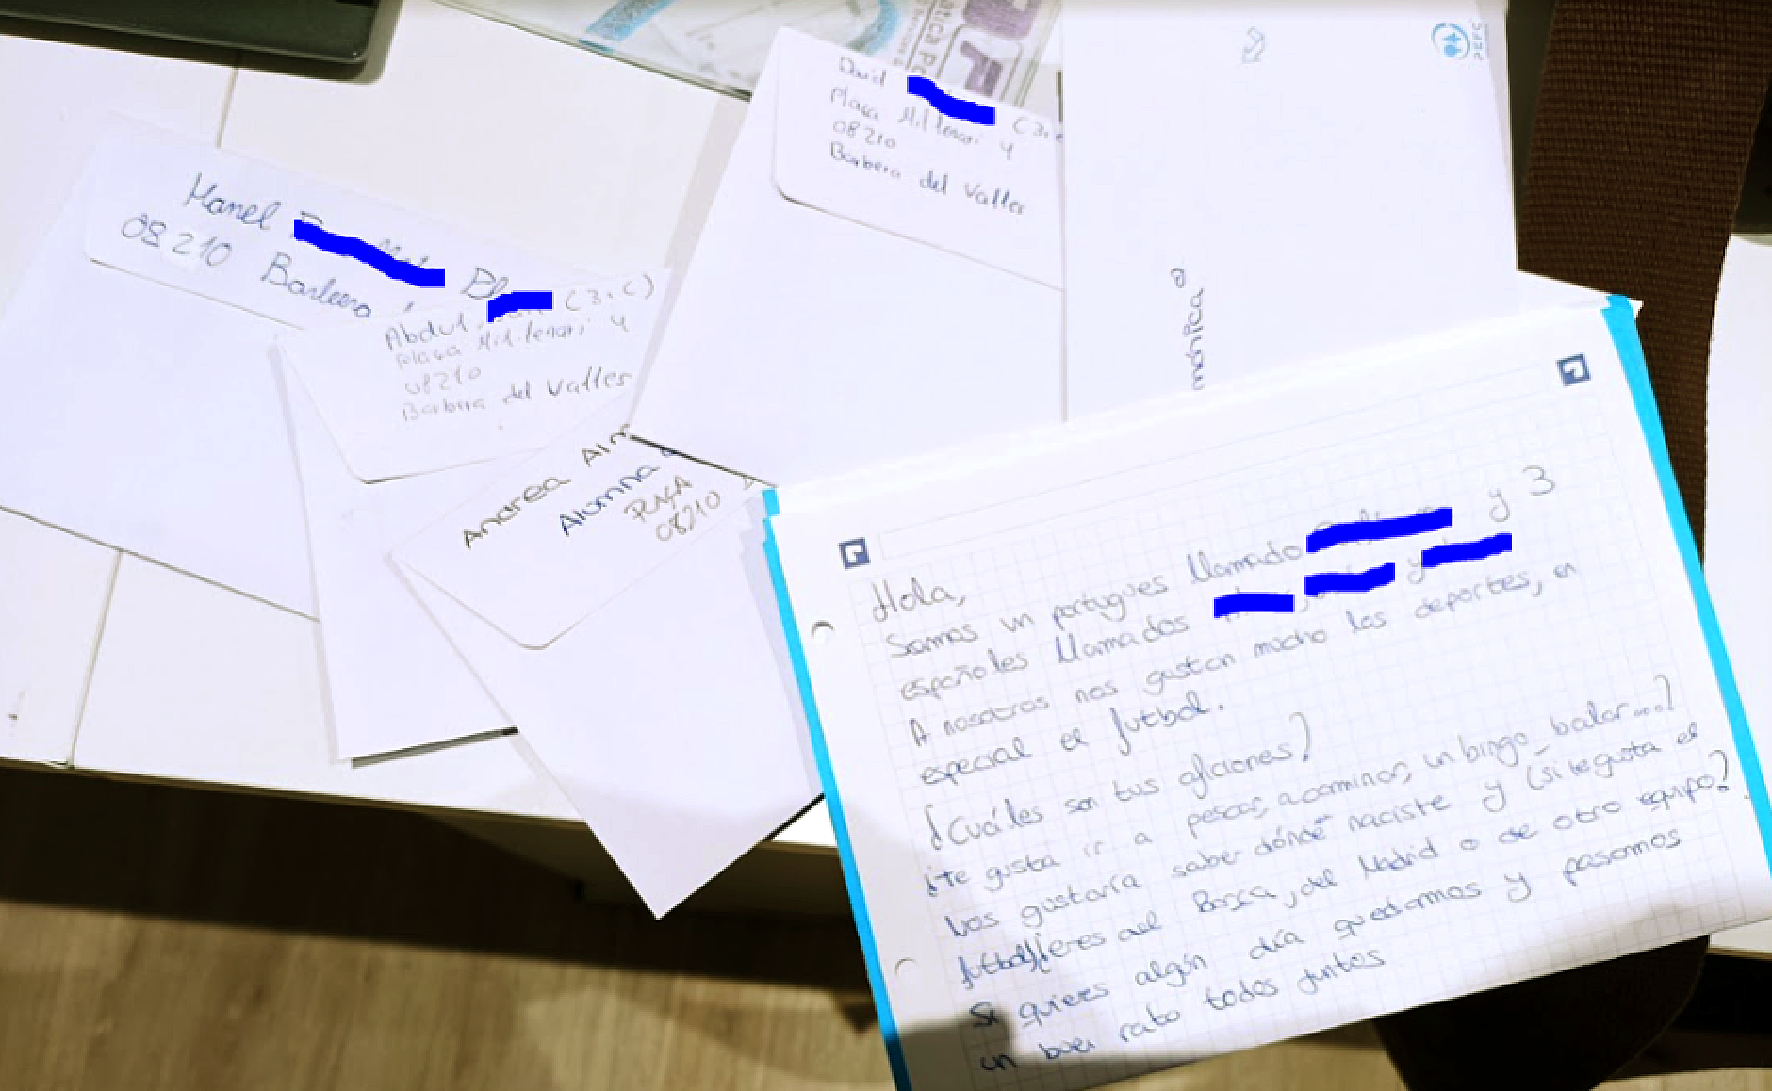 David (3.
Plaça Mil·lenari 4
08210
Barbera del Valles
PEFC
Manel
08210 Barbera
Abdul (3.C)
plaça Mil·lenari 4
08210
Barbera del Valles
Andrea
Alumna
PLAÇA
08210
mónica
Hola,
Somos un portugues llamado y 3
españoles llamados , y
A nosotros nos gustan mucho los deportes, en
especial el futbol.
¿Cuáles son tus aficiones?
¿Te gusta ir a pescar, a caminar, un bingo, bailar...?
Nos gustaría saber dónde naciste y (si te gusta el
futbol) eres del Barça, del Madrid o de otro equipo?
Si quieres algún día quedamos y pasamos
un buen rato todos juntos